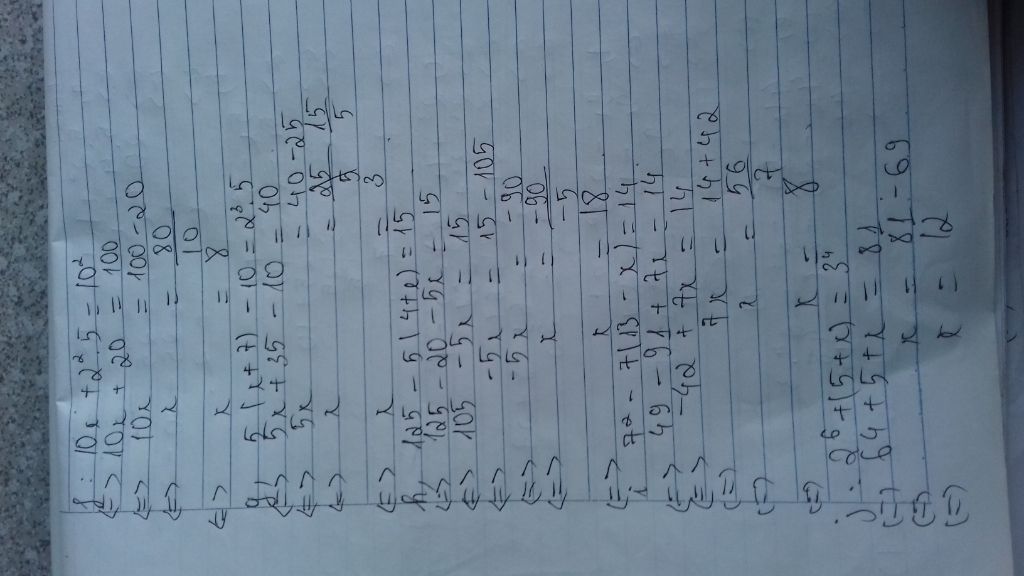 f: 10x + 2² · 5 = 10²
<=> 10x + 20 = 100
<=> 10x = 100 - 20
<=> x = 80/10
<=> x = 8
g, 5(x+7) - 10 = 2³ · 5
<=> 5x + 35 - 10 = 40
<=> 5x = 40 - 25
<=> x = 25/5 15/5
<=> x = 3
h, 125 - 5(4+x) = 15
<=> 125 - 20 - 5x = 15
<=> 105 - 5x = 15
<=> -5x = 15 - 105
<=> -5x = -90
<=> x = -90/-5
<=> x = 18
i 7² - 7(13 - x) = 14
<=> 49 - 91 + 7x = 14
<=> -42 + 7x = 14
<=> 7x = 14 + 42
<=> x = 56/7
<=> x = 8
j: 2⁶ + (5+x) = 3⁴
<=> 64 + 5 + x = 81
<=> x = 81 - 69
<=> x = 12